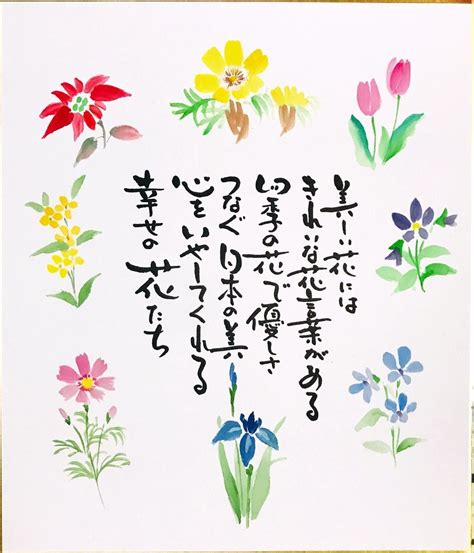 美しい花には
きれいな花言葉がある
四季の花で優しさ
つなぐ日本の美
心をいやしてくれる
幸せの花たち